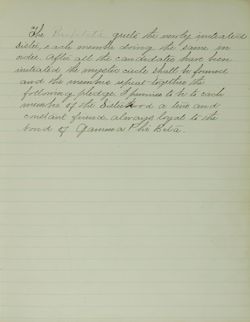 The President greets the newly initiated
sister, each member doing the same in
order. After all the candidates have been
initiated the mystic circle shall be formed
and the members repeat together the
following pledge. I promise to be to each
member of the Sisterhood a true and
constant friend, always loyal to the
bond of Gamma Phi Beta.